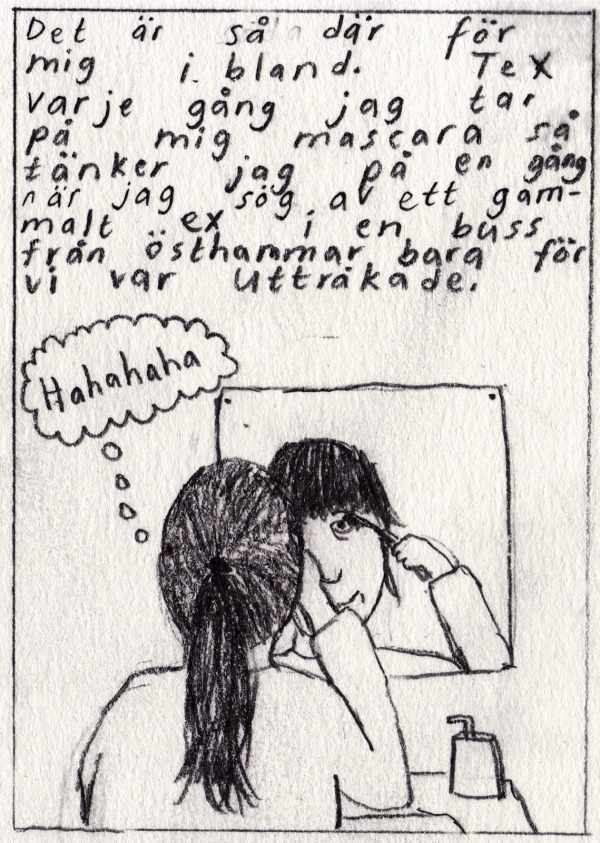 Det är så där för
mig i bland. Tex
varje gång jag tar
på mig mascara så
tänker jag på en gång
när jag sög av ett gam-
malt ex i en buss
från östhammar bara för
vi var uttråkade.
Hahahaha